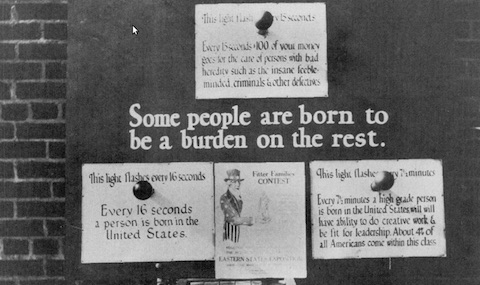 This light flashes every 15 seconds
Every 15 seconds $100 of your money
goes for the care of persons with bad
heredity such as the insane feeble-
minded, criminals & other defectives
Some people are born to
be a burden on the rest.
This light flashes every 16 seconds
Every 16 seconds
a person is born in the
United States.
Fitter Families
CONTEST
EASTERN STATES EXPOSITION
This light flashes every 7½ minutes
Every 7½ minutes a high grade person
is born in the United States who will
have ability to do creative work &
be fit for leadership. About 4% of
all Americans come within this class